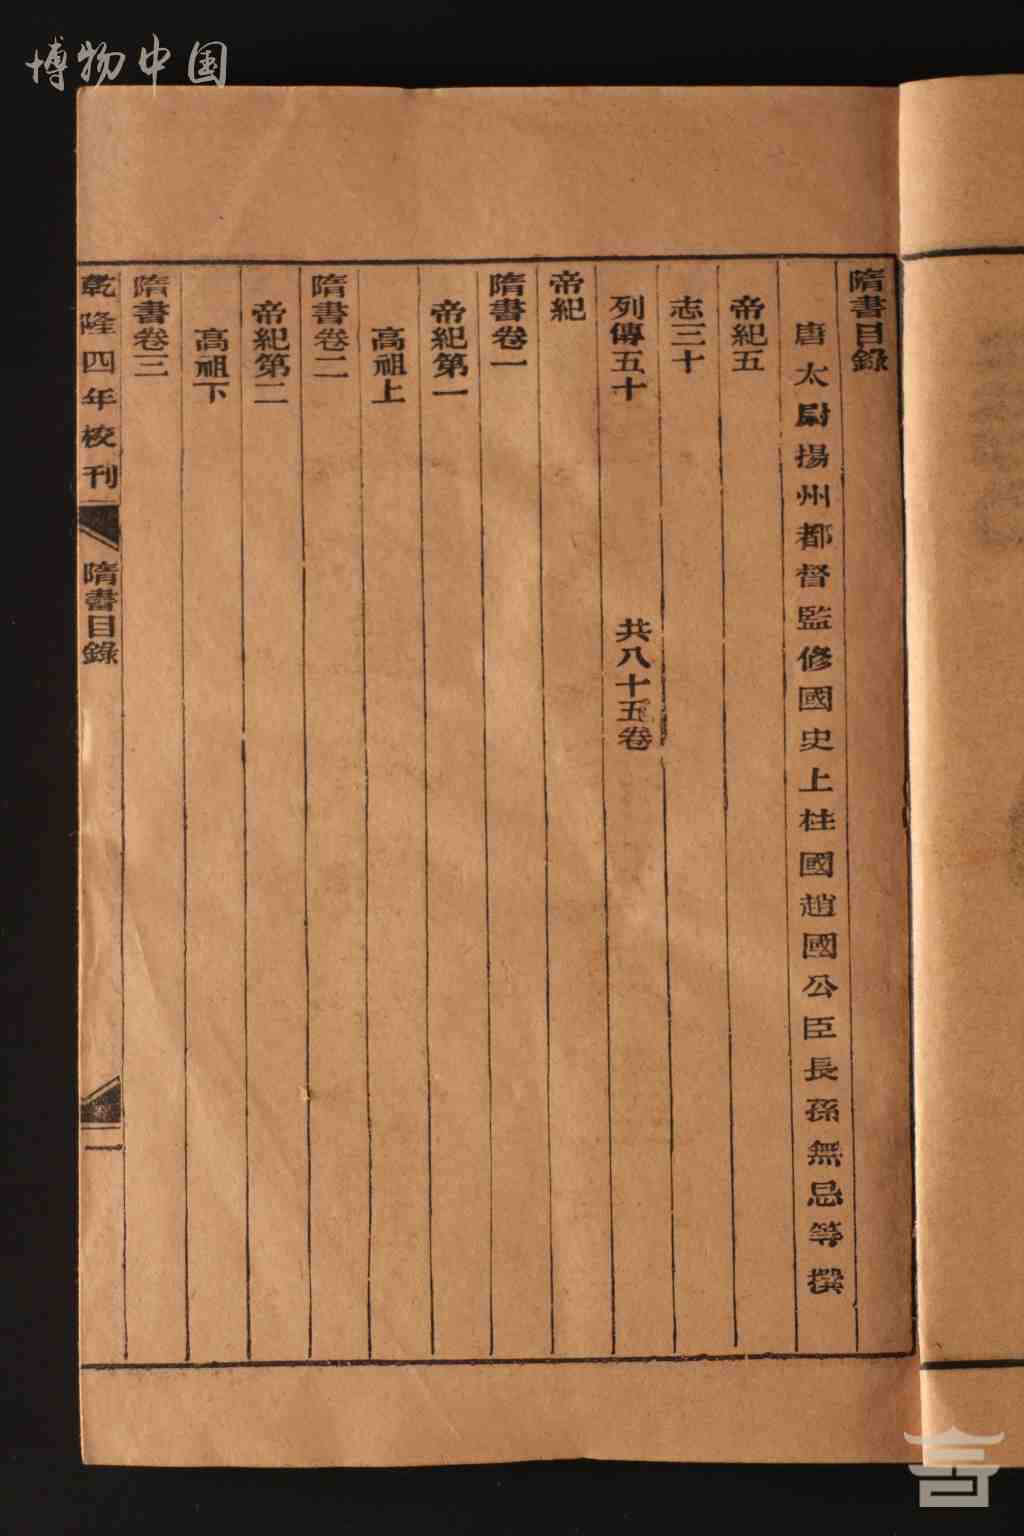 博物中国
隋書目錄
唐太尉揚州都督監修國史上柱國趙國公臣長孫無忌等撰
帝紀五
志三十
列傳五十 共八十五卷
帝紀
隋書卷一
帝紀第一
高祖上
隋書卷二
帝紀第二
高祖下
隋書卷三
乾隆四年校刊 隋書目錄 一